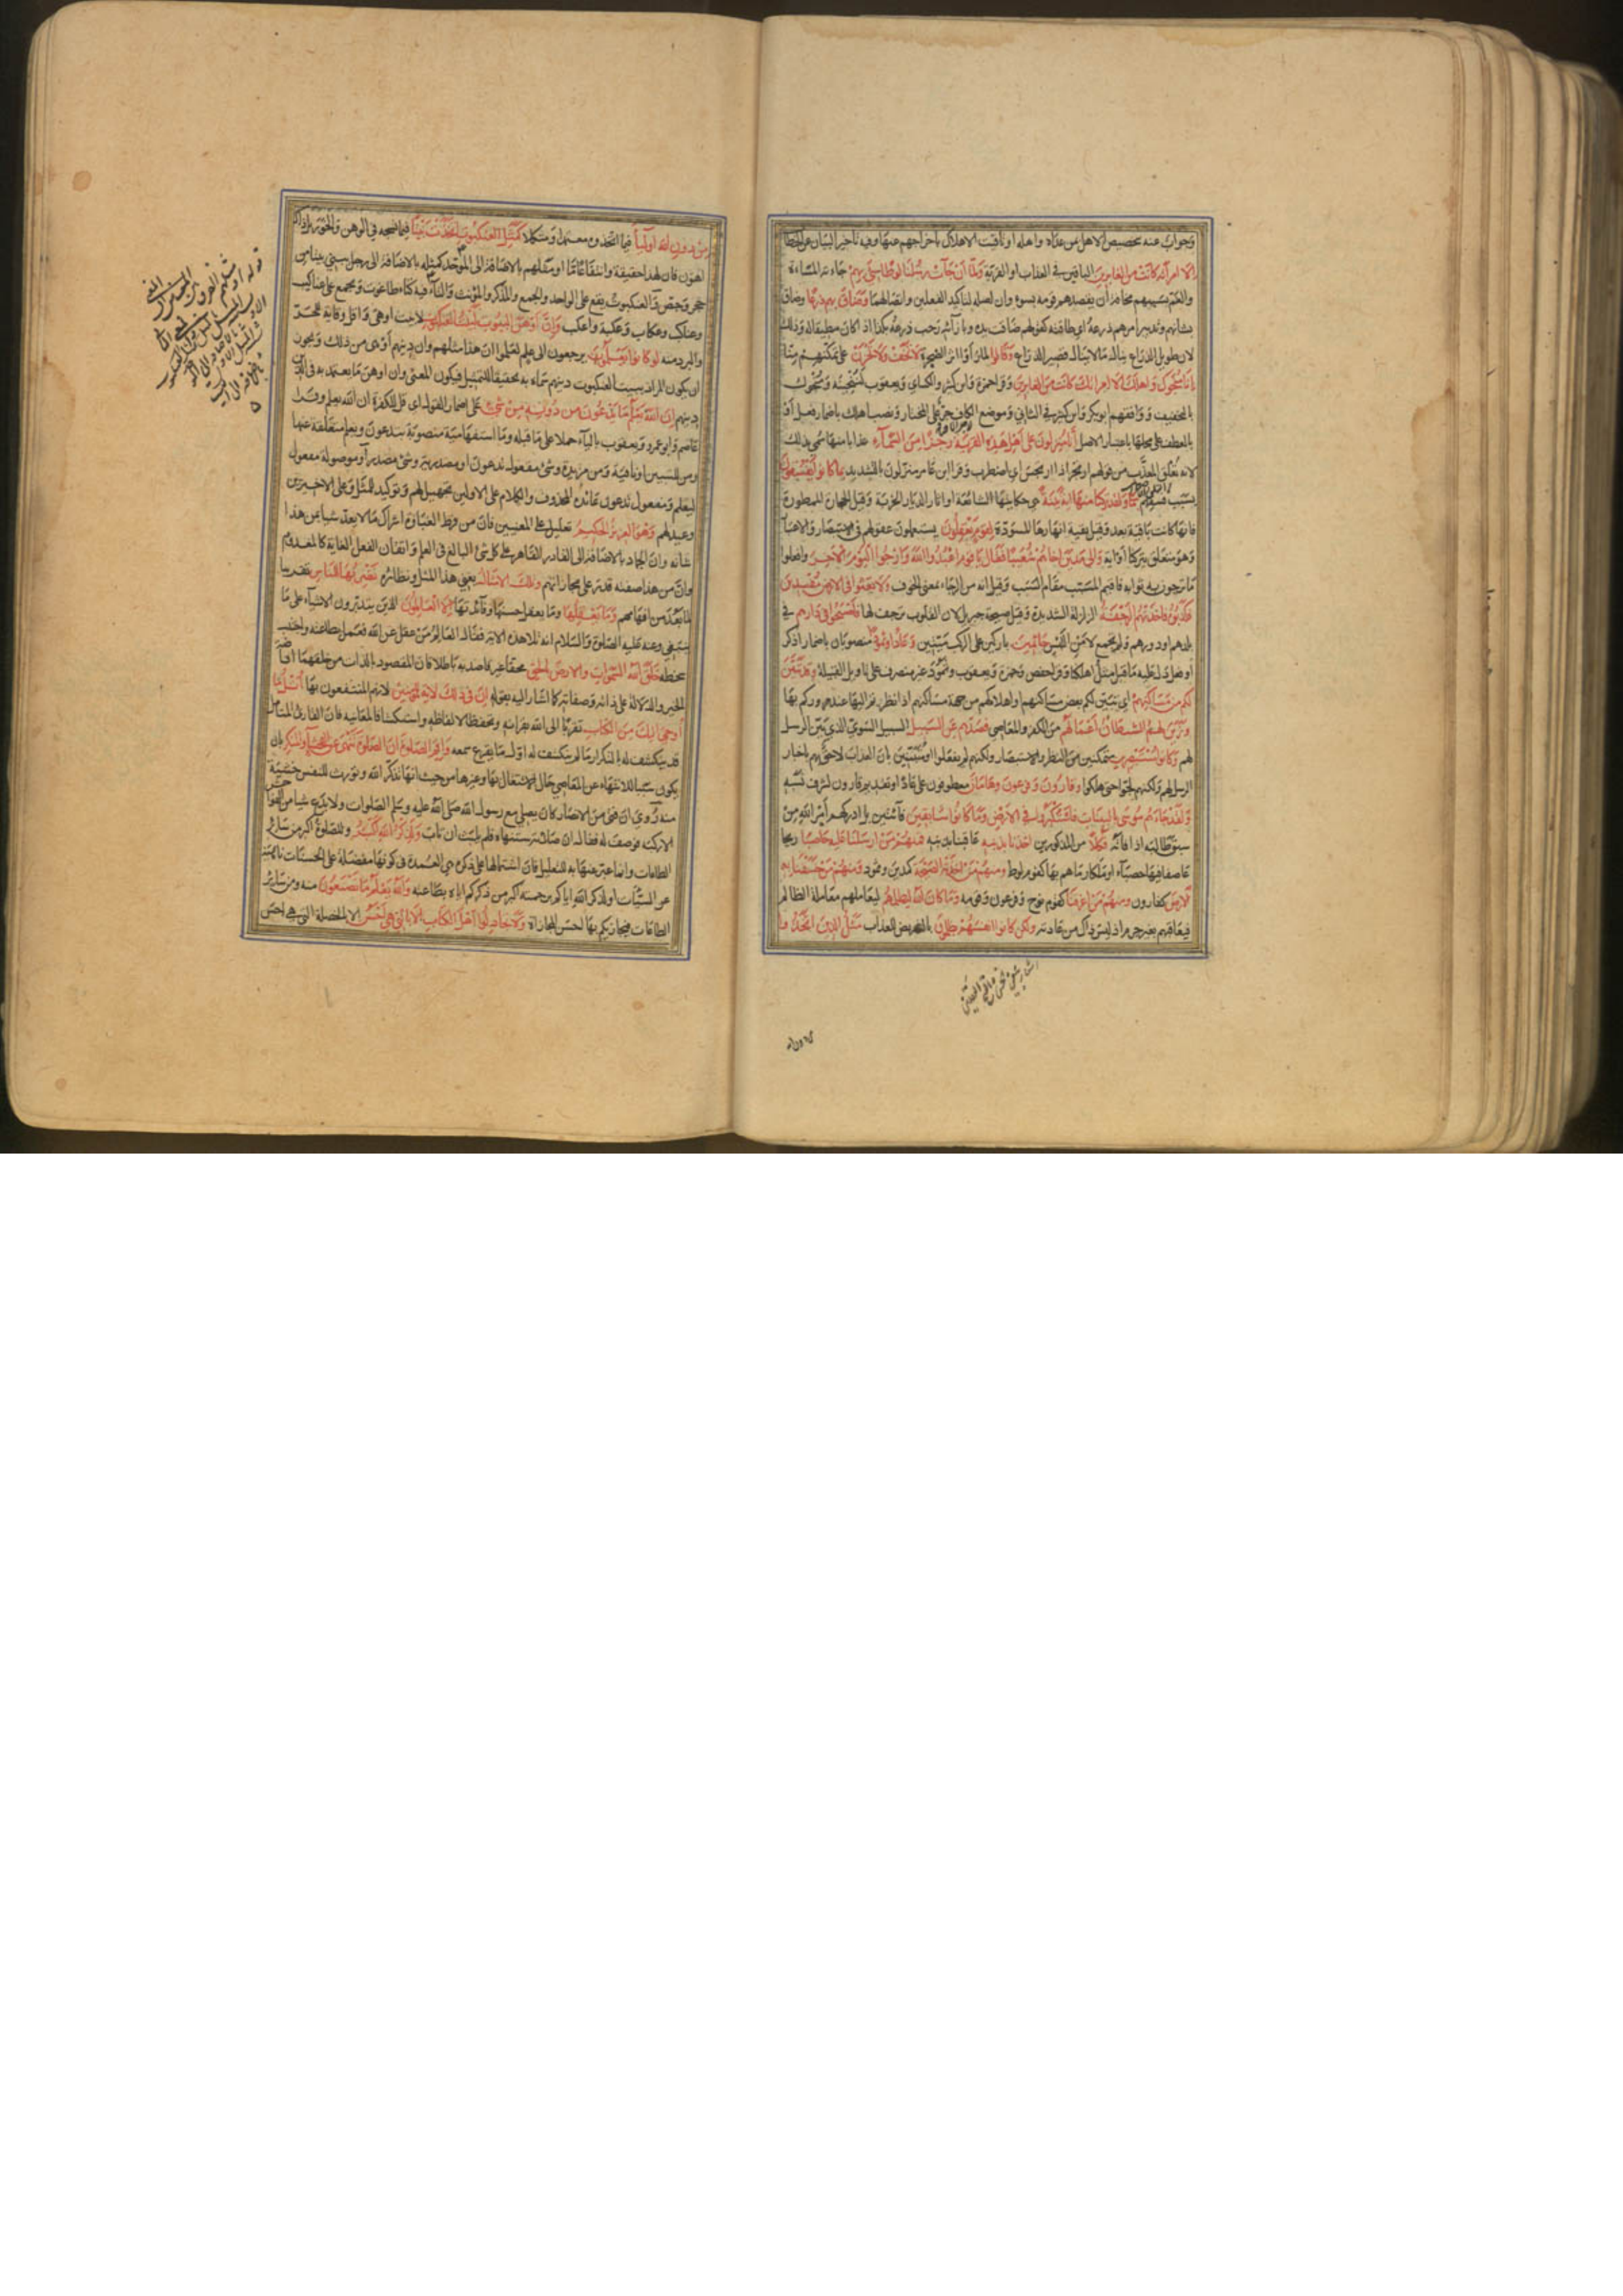 وجواب عنه بتخصيص الاهل بمن عداه واهله او تاقيت الاهلاك باخراجهم عنها وفيه تاخير البيان عن الخطاب
الا امراته كانت من الغابرين الباقين في العذاب او القرية ولما ان جاءت رسلنا لوطا سيئ بهم جاءته المساءة
والغم بسببهم مخافة ان يقصدهم قومه بسوء وان لصلة لتاكيد الفعلين واتصالهما وضاق بهم ذرعا وضاق
بشانهم وتدبير امرهم ذرعه اي طاقته كقولهم ضاقت يده وبازائه رحب ذرعه بكذا اذا كان مطيقا له وذلك
لان طويل الذراع ينال ما لا يناله قصير الذراع وقالوا لما راوا اثر الضجرة لا تخف ولا تحزن على تمكنهم منا
انا منجوك واهلك الا امراتك كانت من الغابرين وقرا حمزة وابن كثير والكسائي ويعقوب لننجينه ومنجوك
بالتخفيف ووافقهم ابو بكر وابن كثير في الثاني وموضع الكاف جر على المختار ونصب اهلك باضمار فعل او
بالعطف على محلها باعتبار الاصل انا منزلون على اهل هذه القرية رجزا من السماء عذابا منها سمي بذلك
لانه يقلق المعذب من قولهم ارتجز اذا ارتجس اي اضطرب وقرا ابن عامر منزلون بالتشديد بما كانوا يفسقون
بسبب فسقهم ولقد تركنا منها اية بينة هي حكايتها الشائعة او اثار الديار الخربة وقيل الحجارة الممطورة
فانها كانت باقية بعد وقيل بقية انهارها المسودة لقوم يعقلون يستعملون عقولهم في الاستبصار والاعتبار
وهو متعلق بتركنا او اية والى مدين اخاهم شعيبا فقال يا قوم اعبدوا الله وارجوا اليوم الاخر وافعلوا
ما ترجون به ثوابه فاقيم المسبب مقام السبب وقيل انه من الرجاء بمعنى الخوف ولا تعثوا في الارض مفسدين
فكذبوه فاخذتهم الرجفة الزلزلة الشديدة وقيل صيحة جبريل لان القلوب ترجف لها فاصبحوا في دارهم في
بلدهم او دورهم ولم يجمع لامن اللبس جاثمين باركين على الركب ميتين وعادا وثمود منصوبان باضمار اذكر
او فعل دل عليه ما قبله مثل اهلكنا وقرا حفص وحمزة ويعقوب وثمود غير منصرف على تاويل القبيلة وقد تبين
لكم من مساكنهم اي تبين لكم بعض مساكنهم او اهلاكهم من جهة مساكنهم اذا نظرتم اليها عند مروركم بها
وزين لهم الشيطان اعمالهم من الكفر والمعاصي فصدهم عن السبيل السبيل السوي الذي بين الرسل
لهم وكانوا مستبصرين متمكنين من النظر والاستبصار ولكنهم لم يفعلوا او متبينين بان العذاب لاحق بهم باخبار
الرسل لهم ولكنهم لجوا حتى هلكوا وقارون وفرعون وهامان معطوفون على عادا وتقديم قارون لشرف نسبه
ولقد جاءهم موسى بالبينات فاستكبروا في الارض وما كانوا سابقين فائتين بل ادركهم امر الله من
سبق طالبه اذا فاته فكلا من المذكورين اخذنا بذنبه عاقبناه بذنبه فمنهم من ارسلنا عليه حاصبا ريحا
عاصفا فيها حصباء او ملكا رماهم بها كقوم لوط ومنهم من اخذته الصيحة كمدين وثمود ومنهم من خسفنا به
الارض كقارون ومنهم من اغرقنا كقوم نوح وفرعون وقومه وما كان الله ليظلمهم ليعاملهم معاملة الظالم
فيعاقبهم بغير جرم اذ ليس ذاك من عادته ولكن كانوا انفسهم يظلمون بالتعريض للعذاب مثل الذين اتخذوا
من دون الله اولياء فيما اتخذوه معتمدا ومتكلا كمثل العنكبوت اتخذت بيتا فيما نسجه في الوهن والخور بل ذاك
اهون فان لهذا حقيقة وانتفاعا ما او مثلهم بالاضافة الى الموحد كمثله بالاضافة الى رجل يبني بيتا من
حجر وجص والعنكبوت يقع على الواحد والجمع والمذكر والمؤنث والتاء فيه كتاء طاغوت ويجمع على عناكيب
وعناكب وعكاب وعكبة واعكب وان اوهن البيوت لبيت العنكبوت لا بيت اوهى واقل وقاية للحر
والبرد منه لو كانوا يعلمون يرجعون الى علم لعلموا ان هذا مثلهم وان دينهم اوهى من ذلك ويجوز
ان يكون المراد ببيت العنكبوت دينهم سماه به تحقيقا للتمثيل فيكون المعنى وان اوهن ما يعتمد به في الدين
دينهم ان الله يعلم ما يدعون من دونه من شيء على اضمار القول اي قل للكفرة ان الله يعلم وقرا
عاصم وابو عمرو ويعقوب بالياء حملا على ما قبله وما استفهامية منصوبة بتدعون ويعلم متعلقة عنها
ومن للتبيين او نافية ومن مزيدة وشيء مفعول تدعون او مصدرية وشيء مصدر او موصولة مفعول
ليعلم ومفعول تدعون عائده المحذوف والكلام على الاولين تجهيل لهم وتوكيد للمثل وعلى الاخيرين
وعيد لهم وهو العزيز الحكيم تعليل على المعنيين فان من فرط الغباوة اشراك ما لا يعد شيئا بمن هذا
شانه وان الجماد بالاضافة الى القادر القاهر على كل شيء البالغ في العلم واتقان الفعل الغاية كالمعدوم
وان من هذا صفته قدر على مجازاتهم وتلك الامثال يعني هذا المثل ونظائره نضربها للناس تقريبا
لما بعد من افهامهم وما يعقلها وما يعقل حسنها وفائدتها الا العالمون الذين يتدبرون الاشياء على ما
ينبغي وعنه عليه الصلوة والسلام انه تلا هذه الاية فقال العالم من عقل عن الله فعمل بطاعته واجتنب
سخطه خلق الله السموات والارض بالحق محقا غير قاصد به باطلا فان المقصود بالذات من خلقهما افاضة
الخير والدلالة على ذاته وصفاته كما اشار اليه بقوله ان في ذلك لاية للمؤمنين لانهم المنتفعون بها اتل ما
اوحي اليك من الكتاب تقربا الى الله بقراءته وتحفظا لالفاظه واستكشافا لمعانيه فان القارئ المتامل
قد ينكشف له بالتكرار ما لم ينكشف له اول ما يقرع سمعه واقم الصلوة ان الصلوة تنهى عن الفحشاء والمنكر بان
يكون سببا للانتهاء عن المعاصي حال الاشتغال بها وغيرها من حيث انها تذكر الله وتورث للنفس خشية
منه روي ان فتى من الانصار كان يصلي مع رسول الله صلى الله عليه وسلم الصلوات ولا يدع شيئا من الفواحش
الا ركبه فوصف له فقال ان صلاته ستنهاه فلم يلبث ان تاب ولذكر الله اكبر وللصلوة اكبر من سائر
الطاعات وانما عبر عنها به للتعليل فان اشتمالها على ذكره هي العمدة في كونها مفضلة على الحسنات ناهية
عن السيئات او لذكر الله اياكم برحمته اكبر من ذكركم اياه بطاعته والله يعلم ما تصنعون منه ومن سائر
الطاعات فيجازيكم بها احسن المجازاة ولا تجادلوا اهل الكتاب الا بالتي هي احسن الا بالخصلة التي هي احسن